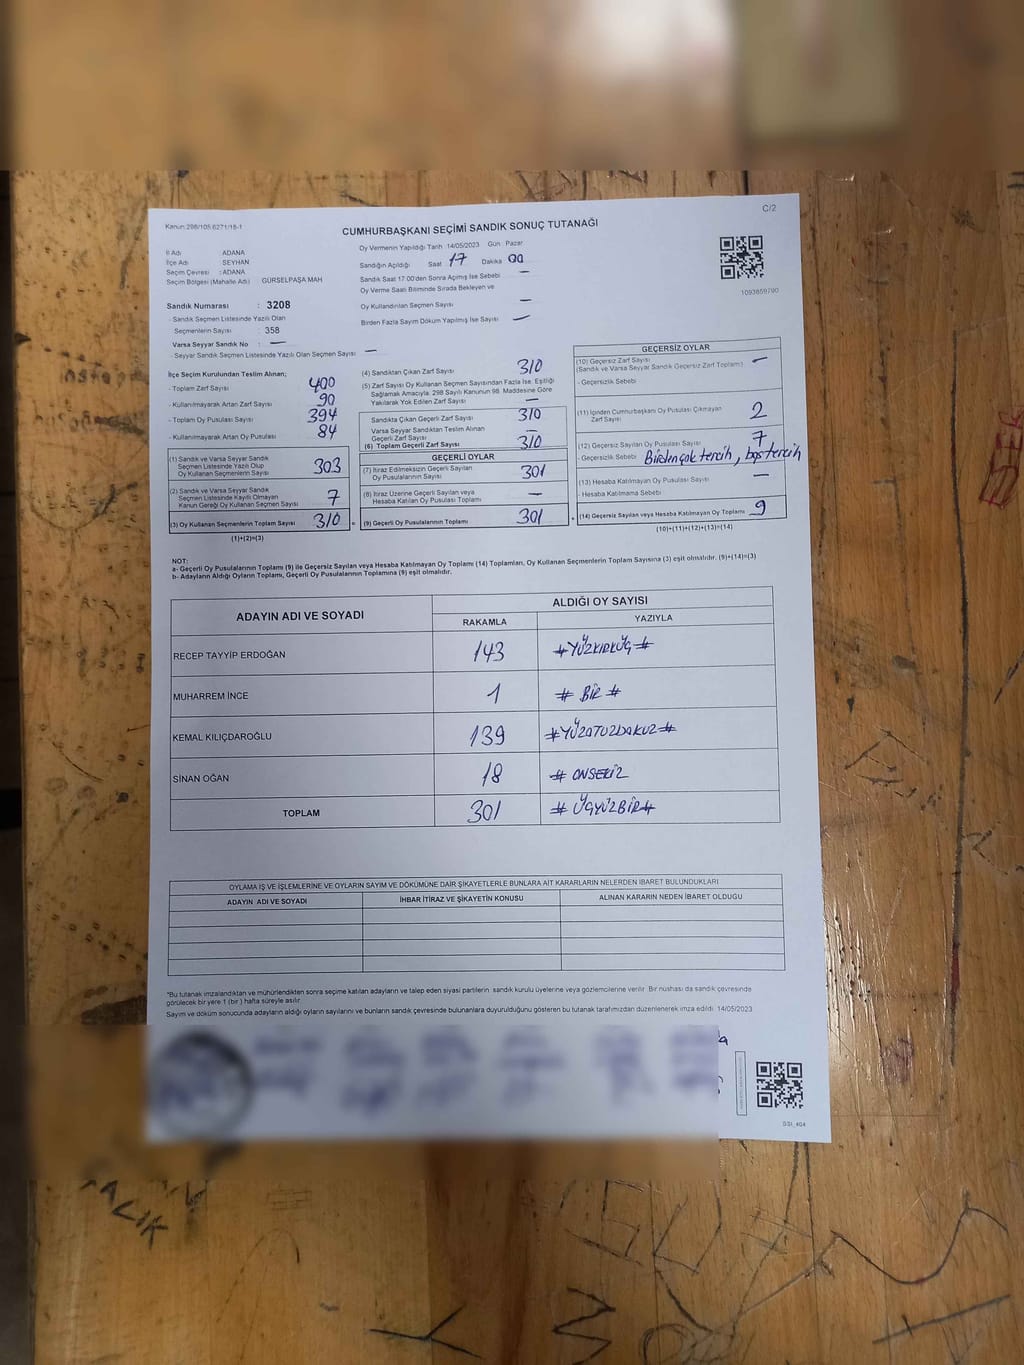 C/2
Kanun:298/105.6271/18-1
CUMHURBAŞKANI SEÇİMİ SANDIK SONUÇ TUTANAĞI
İl Adı : ADANA
İlçe Adı : SEYHAN
Seçim Çevresi : ADANA
Seçim Bölgesi (Mahalle Adı) : GÜRSELPAŞA MAH
Sandık Numarası : 3208
- Sandık Seçmen Listesinde Yazılı Olan
Seçmenlerin Sayısı : 358
Varsa Seyyar Sandık No : —
- Seyyar Sandık Seçmen Listesinde Yazılı Olan Seçmen Sayısı : —
Oy Vermenin Yapıldığı Tarih 14/05/2023 Gün Pazar
Sandığın Açıldığı Saat 17 Dakika 00
Sandık Saat 17:00'den Sonra Açılmış İse Sebebi —
Oy Verme Saati Bitiminde Sırada Bekleyen ve
Oy Kullandırılan Seçmen Sayısı —
Birden Fazla Sayım Döküm Yapılmış İse Sayısı —
1093859790
İlçe Seçim Kurulundan Teslim Alınan;
- Toplam Zarf Sayısı 400
- Kullanılmayarak Artan Zarf Sayısı 90
- Toplam Oy Pusulası Sayısı 394
- Kullanılmayarak Artan Oy Pusulası 84
(1) Sandık ve Varsa Seyyar Sandık
Seçmen Listesinde Yazılı Olup
Oy Kullanan Seçmenlerin Sayısı 303
(2) Sandık ve Varsa Seyyar Sandık
Seçmen Listesinde Kayıtlı Olmayan
Kanun Gereği Oy Kullanan Seçmen Sayısı 7
(3) Oy Kullanan Seçmenlerin Toplam Sayısı 310 =
(1)+(2)=(3)
(4) Sandıktan Çıkan Zarf Sayısı 310
(5) Zarf Sayısı Oy Kullanan Seçmen Sayısından Fazla İse, Eşitliği
Sağlamak Amacıyla, 298 Sayılı Kanunun 98. Maddesine Göre
Yakılarak Yok Edilen Zarf Sayısı —
Sandıkta Çıkan Geçerli Zarf Sayısı 310
Varsa Seyyar Sandıktan Teslim Alınan
Geçerli Zarf Sayısı —
(6) Toplam Geçerli Zarf Sayısı 310
GEÇERLİ OYLAR
(7) İtiraz Edilmeksizin Geçerli Sayılan
Oy Pusulasının Sayısı 301
(8) İtiraz Üzerine Geçerli Sayılan veya
Hesaba Katılan Oy Pusulası Toplamı —
(9) Geçerli Oy Pusulalarının Toplamı 301 +
GEÇERSİZ OYLAR
(10) Geçersiz Zarf Sayısı —
(Sandık ve Varsa Seyyar Sandık Geçersiz Zarf Toplamı)
- Geçersizlik Sebebi
(11) İçinden Cumhurbaşkanı Oy Pusulası Çıkmayan
Zarf Sayısı 2
(12) Geçersiz Sayılan Oy Pusulası Sayısı 7
- Geçersizlik Sebebi Birden çok tercih, boş tercih
(13) Hesaba Katılmayan Oy Pusulası Sayısı —
- Hesaba Katılmama Sebebi
(14) Geçersiz Sayılan veya Hesaba Katılmayan Oy Toplamı 9
(10)+(11)+(12)+(13)=(14)
NOT:
a- Geçerli Oy Pusulalarının Toplamı (9) ile Geçersiz Sayılan veya Hesaba Katılmayan Oy Toplamı (14) Toplamları, Oy Kullanan Seçmenlerin Toplam Sayısına (3) eşit olmalıdır. (9)+(14)=(3)
b- Adayların Aldığı Oyların Toplamı, Geçerli Oy Pusulalarının Toplamına (9) eşit olmalıdır.
ADAYIN ADI VE SOYADI ALDIĞI OY SAYISI
RAKAMLA YAZIYLA
RECEP TAYYİP ERDOĞAN 143 #YÜZKIRKÜÇ#
MUHARREM İNCE 1 # BİR #
KEMAL KILIÇDAROĞLU 139 #YÜZOTUZDOKUZ#
SİNAN OĞAN 18 # ONSEKİZ
TOPLAM 301 # ÜÇYÜZBİR#
OYLAMA İŞ VE İŞLEMLERİNE VE OYLARIN SAYIM VE DÖKÜMÜNE DAİR ŞİKAYETLERLE BUNLARA AİT KARARLARIN NELERDEN İBARET BULUNDUKLARI
ADAYIN ADI VE SOYADI İHBAR İTİRAZ VE ŞİKAYETİN KONUSU ALINAN KARARIN NEDEN İBARET OLDUĞU
*Bu tutanak imzalandıktan ve mühürlendikten sonra seçime katılan adayların ve talep eden siyasi partilerin sandık kurulu üyelerine veya gözlemcilerine verilir. Bir nüshası da sandık çevresinde
görülecek bir yere 1 (bir) hafta süreyle asılır.
Sayım ve döküm sonucunda adayların aldığı oyların sayılarını ve bunların sandık çevresinde bulunanlara duyurulduğunu gösteren bu tutanak tarafımızdan düzenlenerek imza edildi. 14/05/2023
SSI_404